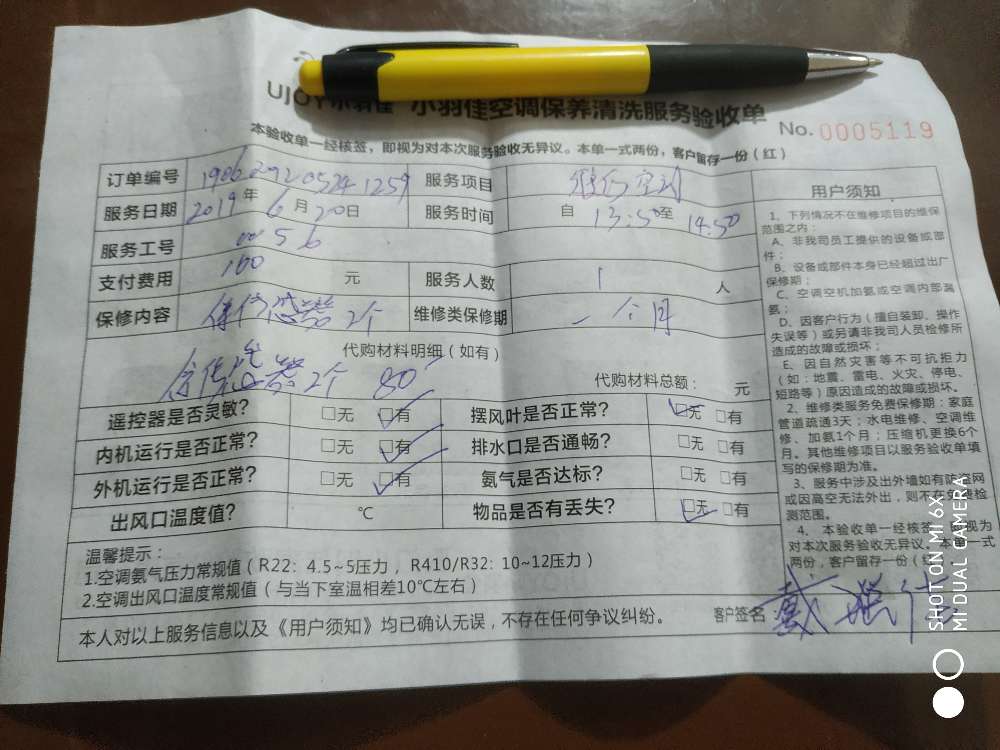 UJOY 小羽佳空调保养清洗服务验收单
No. 0005119
本验收单一经核签，即视为对本次服务验收无异议。本单一式两份，客户留存一份（红）
订单编号 服务项目
服务日期 2019年6月20日 服务时间 自 13:50至 14:50
服务工号 0056
支付费用 100 元 服务人数 1 人
保修内容 2个 维修类保修期 一个月
代购材料明细（如有）
2个 80 代购材料总额： 元
遥控器是否灵敏？ □无 □有 摆风叶是否正常？ □无 □有
内机运行是否正常？ □无 □有 排水口是否通畅？ □无 □有
外机运行是否正常？ □无 □有 氨气是否达标？ □无 □有
出风口温度值？ ℃ 物品是否有丢失？ □无 □有
温馨提示：
1.空调氨气压力常规值（R22：4.5~5压力，R410/R32：10~12压力）
2.空调出风口温度常规值（与当下室温相差10℃左右）
本人对以上服务信息以及《用户须知》均已确认无误，不存在任何争议纠纷。
客户签名
用户须知
1、下列情况不在维修项目的维保
范围之内：
A、非我司员工提供的设备或部
件；
B、设备或部件本身已经超过出厂
保修期；
C、空调空机加氨或空调内部漏
氨；
D、因客户行为（擅自装卸、操作
失误等）或另请非我司人员检修所
造成的故障或损坏；
E、因自然灾害等不可抗拒力
（如：地震、雷电、火灾、停电、
短路等）原因造成的故障或损坏。
2、维修类服务免费保修期：家庭
管道疏通3天；水电维修、空调维
修、加氨1个月；压缩机更换6个
月。其他维修项目以服务验收单填
写的保修期为准。
3、服务中涉及出外墙如有防盗网
或因高空无法外出，则不 免费检
测范围。
4、本验收单一经核签，即视为
对本次服务验收无异议。本单一式
两份，客户留存一份（红）
SHOT ON MI 6X
MI DUAL CAMERA